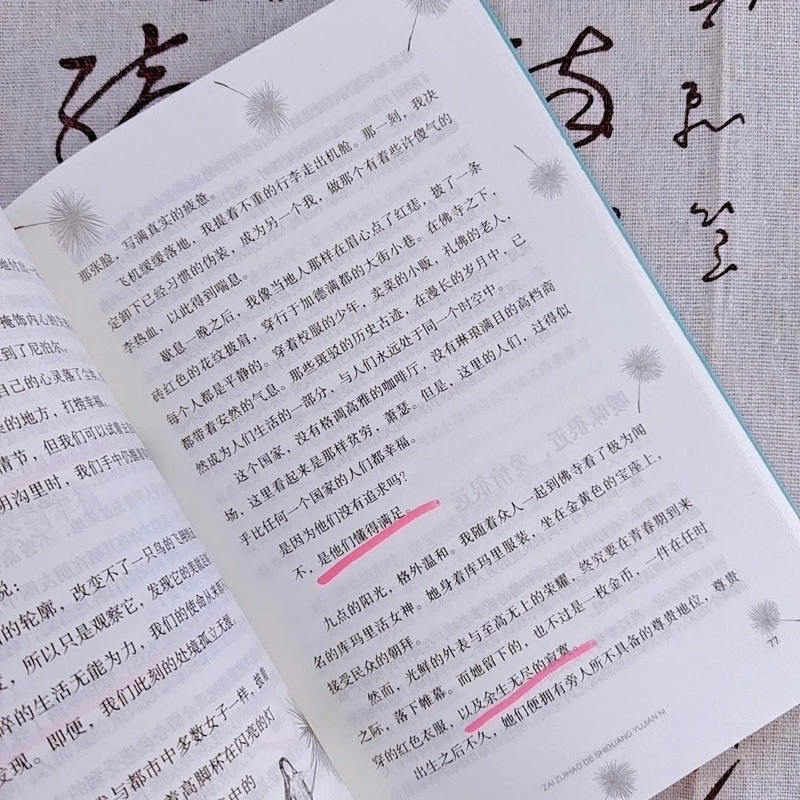 掩饰内心的
到了尼泊尔。
自己的心灵落了尘
的地方，打捞幸福。
情节，但我们可以试着去
沟里时，我们手中仍握着
说：
的轮廓，改变不了一只鸟的飞翔
，所以只是观察它，发现它的美
碎的生活无能为力，我们的使命从来
发现。即便，我们此刻的处境孤立无援
与都市中多数女子一样，披着
着高脚杯在闪亮的灯
中的
那张脸，写满真实的疲惫。
飞机缓缓落地，我提着不重的行李走出机舱。那一刻，我决
定卸下已经习惯的伪装，成为另一个我，做那个有着些许傻气的
李热血，以此得到喘息。
歇息一晚之后，我像当地人那样在眉心点了红痣，披了一条
砖红色的花纹披肩，穿行于加德满都的大街小巷。在佛寺之下，
每个人都是平静的。穿着校服的少年，卖菜的小贩，礼佛的老人，
都带着安然的气息。那些斑驳的历史古迹，在漫长的岁月中，已
然成为人们生活的一部分，与人们永远处于同一个时空中。
这个国家，没有格调高雅的咖啡厅，没有琳琅满目的高档商
场，这里看起来是那样贫穷，萧瑟。但是，这里的人们，过得似
乎比任何一个国家的人们都幸福。
是因为他们没有追求吗？
不，是他们懂得满足。
九点的阳光，格外温和。我随着众人一起到佛寺看了极为闻
名的库玛里活女神。她身着库玛里服装，坐在金黄色的宝座上，
接受民众的朝拜。
然而，光鲜的外表与至高无上的荣耀，终究要在青春期到来
之际，落下帷幕。而她留下的，也不过是一枚金币，一件在任时
穿的红色衣服，以及余生无尽的寂寞。
出生之后不久，她们便拥有旁人所不具备的尊贵地位，尊贵
77
ZAI ZUIHAO DE SHIGUANG YUJIAN NI